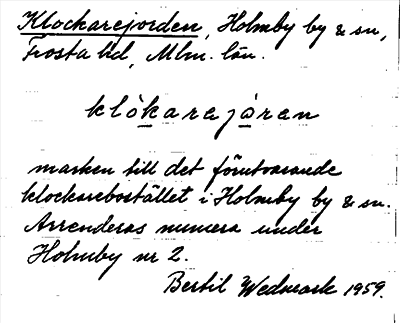 Klockarejorden, Holmby by & sn,
Frosta hd, Mlm. län.
klòkarejòren
marken till det förutvarande
klockarebostället i Holmby by & sn.
Arrenderas numera under
Holmby nr 2.
Bertil Wedmark 1959.